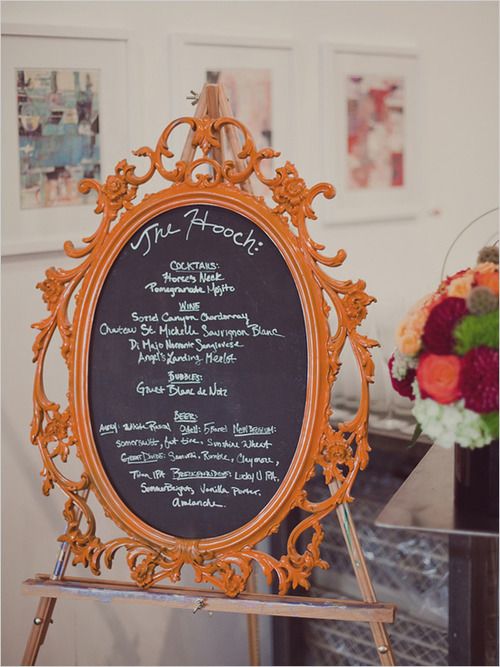 The Hooch:
Cocktails:
Horse's Neck
Pomegranate Mojito
Wine
Chardonnay
Chateau St. Michelle Sauvignon Blanc
Di Majo Norante Sangiovese
Angel's Landing Merlot
Bubbles:
Gruet Blanc de Noir
Beer:
Avery: White Rascal, Odell: 5 Barrel New Belgium:
Somersault, Fat Tire, Sunshine Wheat
Great Divide: Samurai, Rumble, Claymore,
Titan IPA Breckenridge: Lucky U IPA,
Vanilla Porter,
Avalanche.